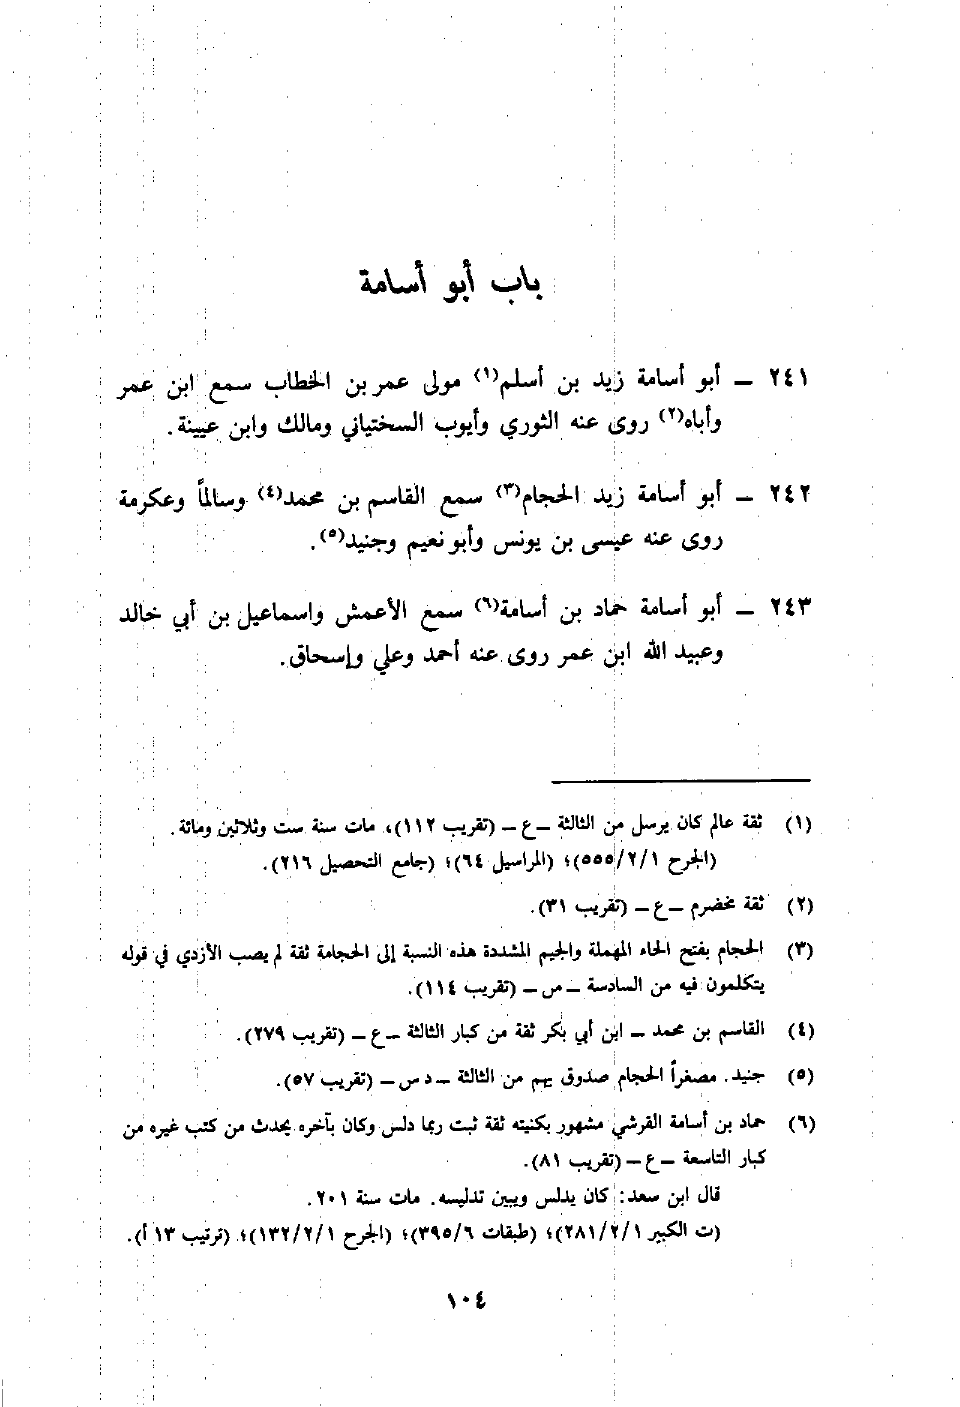 باب أبو أسامة
٢٤١ ــ أبو أسامة زيد بن أسلم(١) مولى عمر بن الخطاب سمع ابن عمر
وأباه(٢) روى عنه الثوري وأيوب السختياني ومالك وابن عيينة.
٢٤٢ ــ أبو أسامة زيد الحجام(٣) سمع القاسم بن محمد(٤) وسالماً وعكرمة
روى عنه عيسى بن يونس وأبو نعيم وجنيد(٥).
٢٤٣ ــ أبو أسامة حماد بن أسامة(٦) سمع الأعمش واسماعيل بن أبي خالد
وعبيد الله ابن عمر روى عنه أحمد وعلي وإسحاق.
(١) ثقة عالم كان يرسل من الثالثة ــ ع ــ (تقريب ١١٢)، مات سنة ست وثلاثين ومائة.
(الجرح ٥٥٥/٢/١)؛ (المراسيل ٦٤)؛ (جامع التحصيل ٢١٦).
(٢) ثقة مخضرم ــ ع ــ (تقريب ٣١).
(٣) الحجام بفتح الحاء المهملة والجيم المشددة هذه النسبة إلى الحجامة ثقة لم يصب الأزدي في قوله
يتكلمون فيه من السادسة ــ س ــ (تقريب ١١٤).
(٤) القاسم بن محمد ــ ابن أبي بكر ثقة من كبار الثالثة ــ ع ــ (تقريب ٢٧٩).
(٥) جنيد. مصغراً الحجام صدوق يهم من الثالثة ــ د س ــ (تقريب ٥٧).
(٦) حماد بن أسامة القرشي مشهور بكنيته ثقة ثبت ربما دلس وكان بآخره يحدث من كتب غيره من
كبار التاسعة ــ ع ــ (تقريب ٨١).
قال ابن سعد: كان يدلس ويبين تدليسه. مات سنة ٢٠١.
(ت الكبير ٢٨١/٢/١)؛ (طبقات ٣٩٥/٦)؛ (الجرح ١٣٢/٢/١)؛ (ترتيب ١٣ أ).
١٠٤